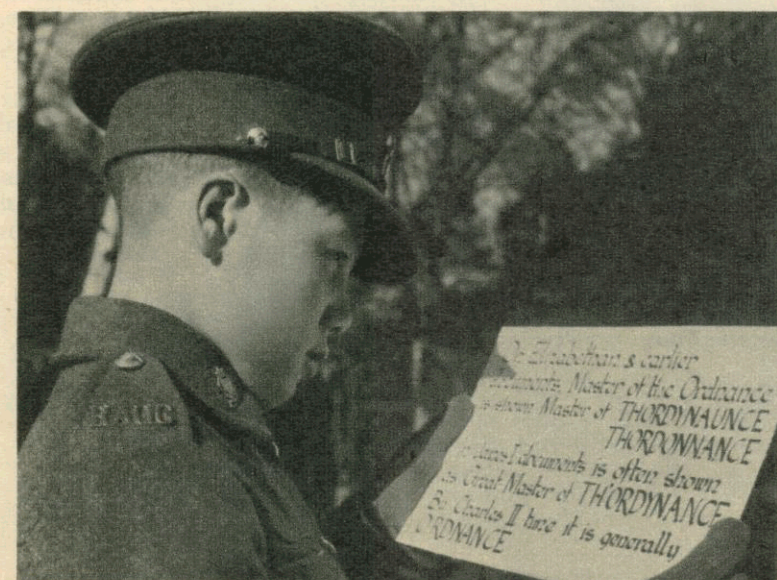 In Elizabethan & earlier
documents, Master of the Ordnance
is shown Master of THORDYNAUNCE
THORDONNANCE
documents is often shown
as Great Master of TH'ORDYNANCE
By Charles II time it is generally
ORDNANCE